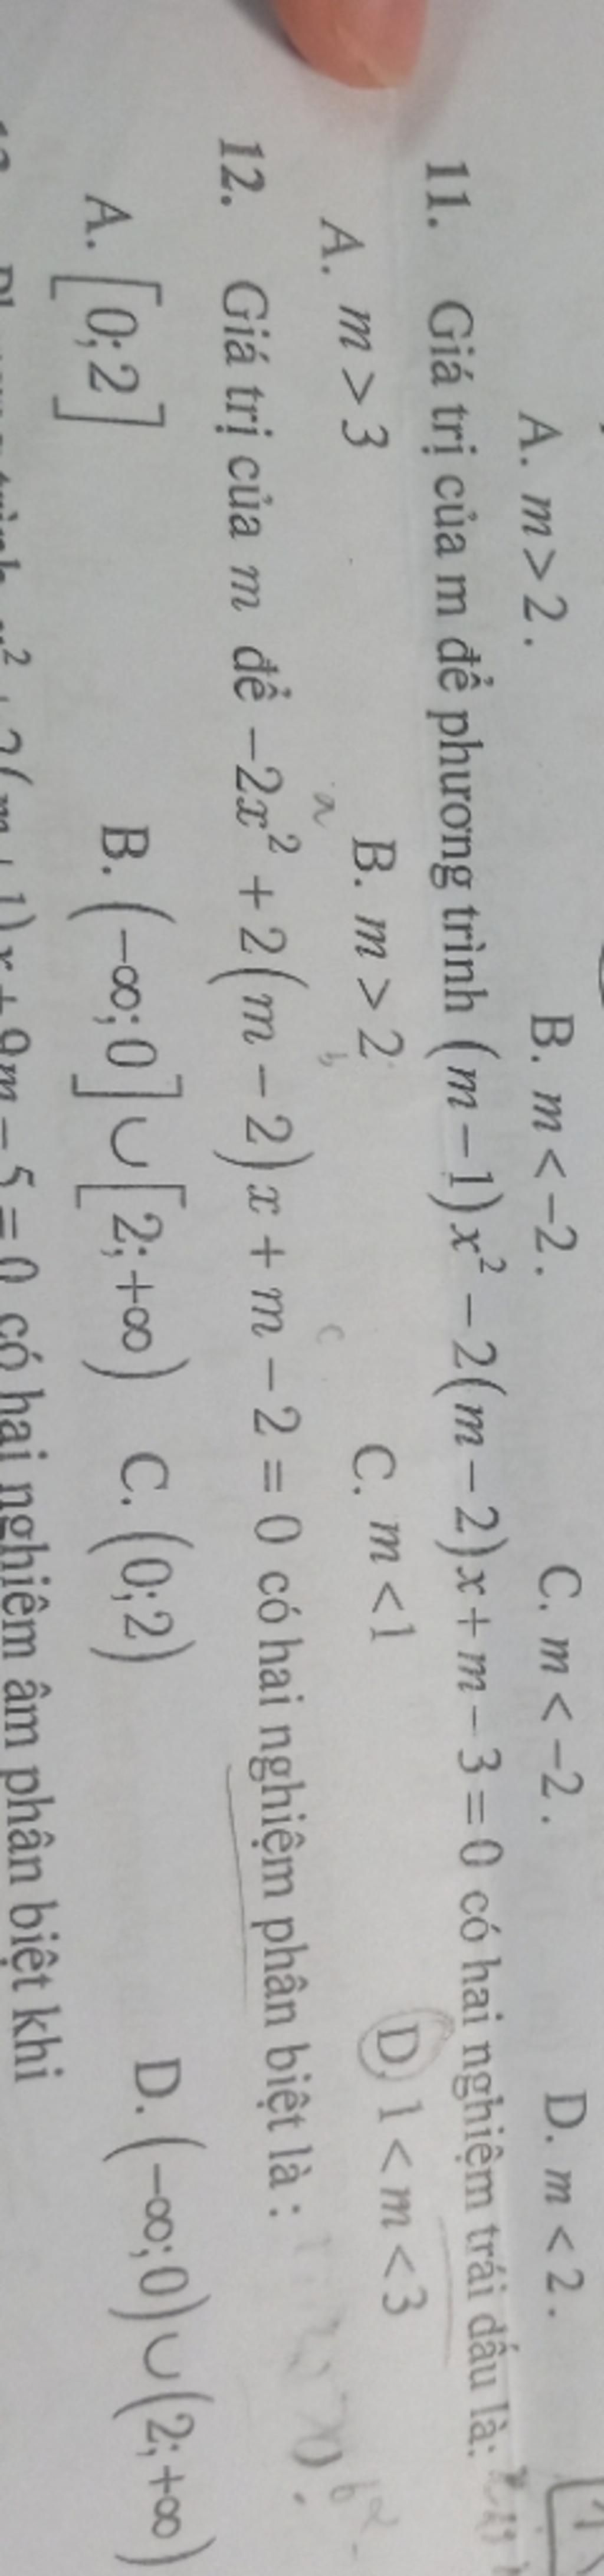 A. m > 2 . B. m < −2 . C. m < −2 . D. m < 2 .
11. Giá trị của m để phương trình (m − 1)x² − 2(m − 2)x + m − 3 = 0 có hai nghiệm trái dấu là:
A. m > 3 B. m > 2 C. m < 1 D. 1 < m < 3
a b c
12. Giá trị của m để −2x² + 2(m − 2)x + m − 2 = 0 có hai nghiệm phân biệt là :
A. [0;2] B. (−∞;0] ∪ [2;+∞) C. (0;2) D. (−∞;0) ∪ (2;+∞)
+ 9m − 5 = 0 có hai nghiệm âm phân biệt khi